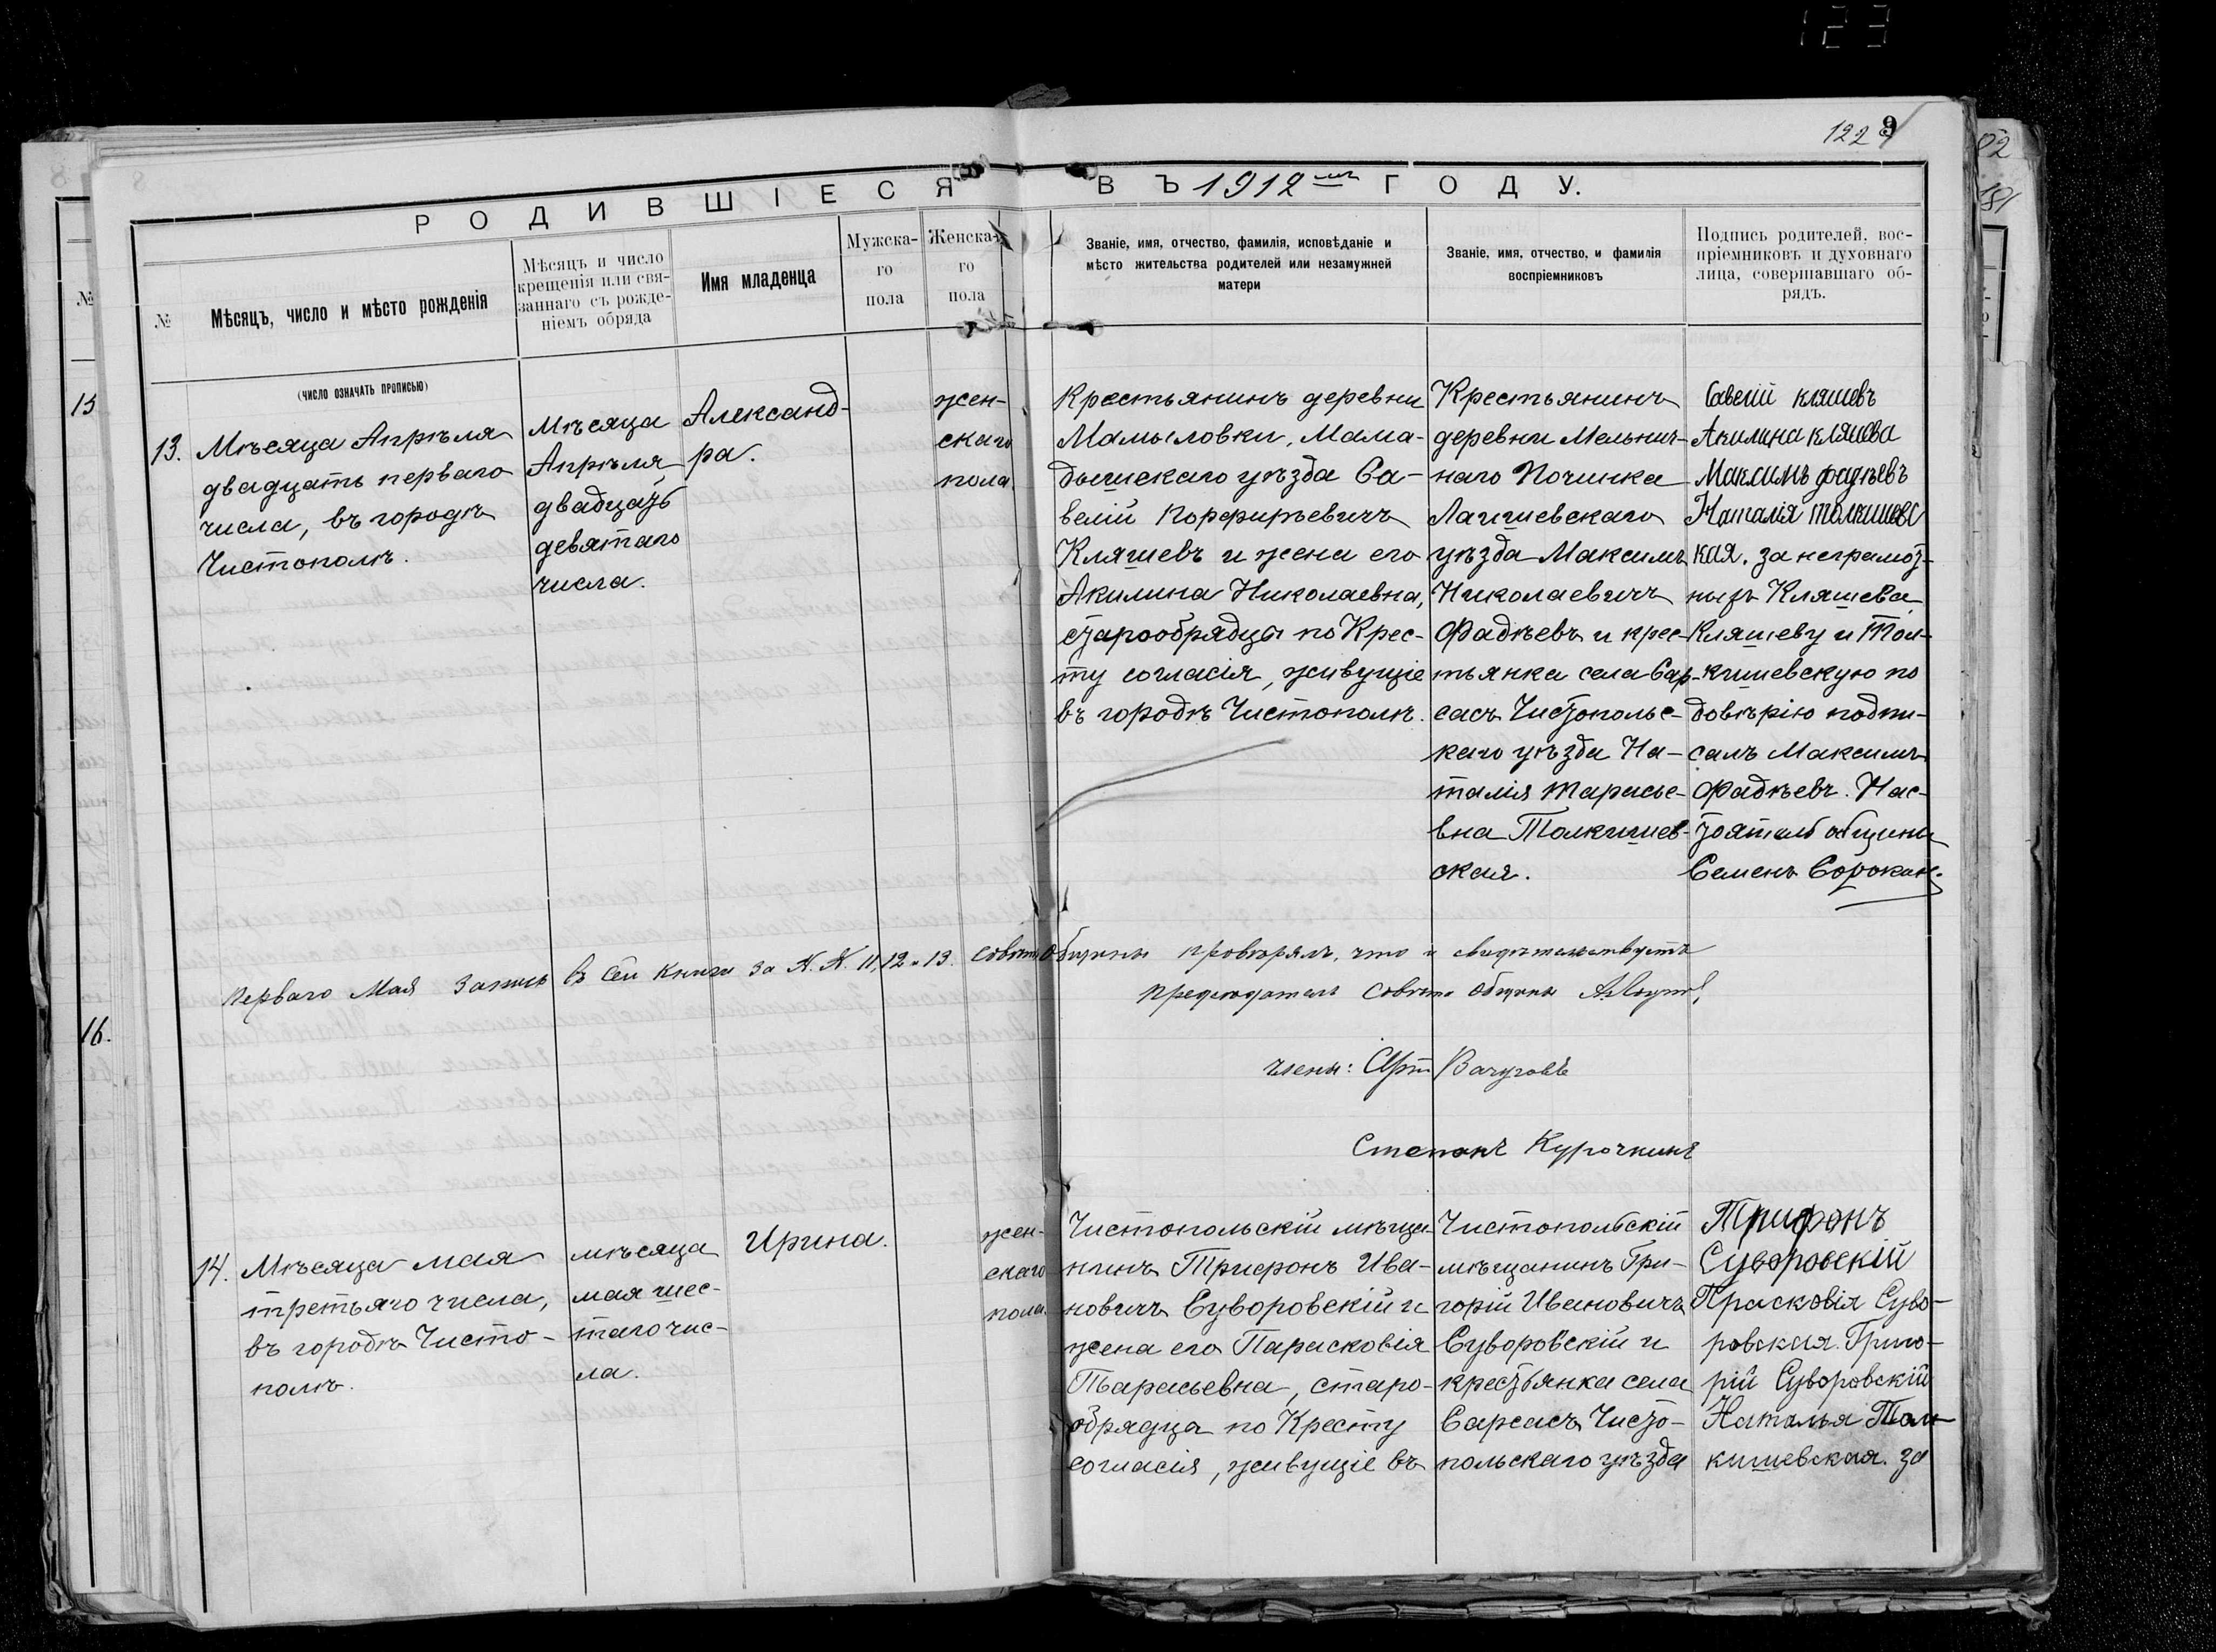 123
122 9
РОДИВШІЕСЯ ВЪ 1912 мъ ГОДУ.
№
Мѣсяцъ, число и мѣсто рожденія
Мѣсяцъ и число
крещенія или свя-
заннаго съ рожде-
ніемъ обряда
Имя младенца
Мужска-
го
пола
Женска-
го
пола
Званіе, имя, отчество, фамилія, исповѣданіе и
мѣсто жительства родителей или незамужней
матери
Званіе, имя, отчество, и фамилія
воспріемниковъ
Подпись родителей, вос-
пріемниковъ и духовнаго
лица, совершавшаго об-
рядъ.
(число означать прописью)
13.
Мѣсяца Апрѣля
двадцать перваго
числа, въ городѣ
Чистополѣ.
Мѣсяца
Апрѣля
двадцать
девятаго
числа.
Александ-
ра.
жен-
скаго
пола.
Крестьянинъ деревни
Мамыловки, Мама-
дышскаго уѣзда Са-
велій Порфирьевичъ
Кляшевъ и жена его
Акилина Николаевна,
старообрядцы по Крес-
ту согласія, живущіе
въ городѣ Чистополѣ.
Крестьянинъ
деревни Мельнич-
наго Починка
Лаишевскаго
уѣзда Максимъ
Николаевичъ
Фадѣевъ и крес-
тьянка села Сар-
сасъ Чистопольс-
каго уѣзда На-
талія Тарасье-
вна Толкишев-
ская.
Савелій кляшевъ
Акилина кляшева
Максимъ фадѣевъ
Наталія толкишевс
кая. за неграмот-
ныхъ Кляшева
Кляшеву и Тол-
кишевскую по
довѣрію подпи-
салъ Максимъ
Фадѣевъ. Нас-
тоятель общины
Семенъ Сорокин.
Перваго Мая Запись въ сей книге за №.№. 11, 12 и 13. Советъ Общины провѣрялъ, что и свидѣтельствуетъ
Председатель Совѣта Общины
члены: Арт Вачуговъ
Степанъ Курочкинъ
14.
Мѣсяца мая
третьяго числа,
въ городѣ Чисто-
полѣ.
мѣсяца
мая шес-
таго чис-
ла.
Ирина.
жен-
скаго
пола.
Чистопольскій мѣща-
нинъ Трифонъ Ива-
новичъ Суворовскій и
жена его Парасковія
Тарасьевна, старо-
обрядцы по Кресту
согласія, живущіе въ
Чистопольскій
мѣщанинъ Гри-
горій Ивановичъ
Суворовскій и
крестьянка села
Сарсасъ Чисто-
польскаго уѣзда
Трифонъ
Суворовскій
Прасковія Суво-
ровская. Григо-
рій Суворовскій
Наталья Тол-
кишевская. за
15
16.